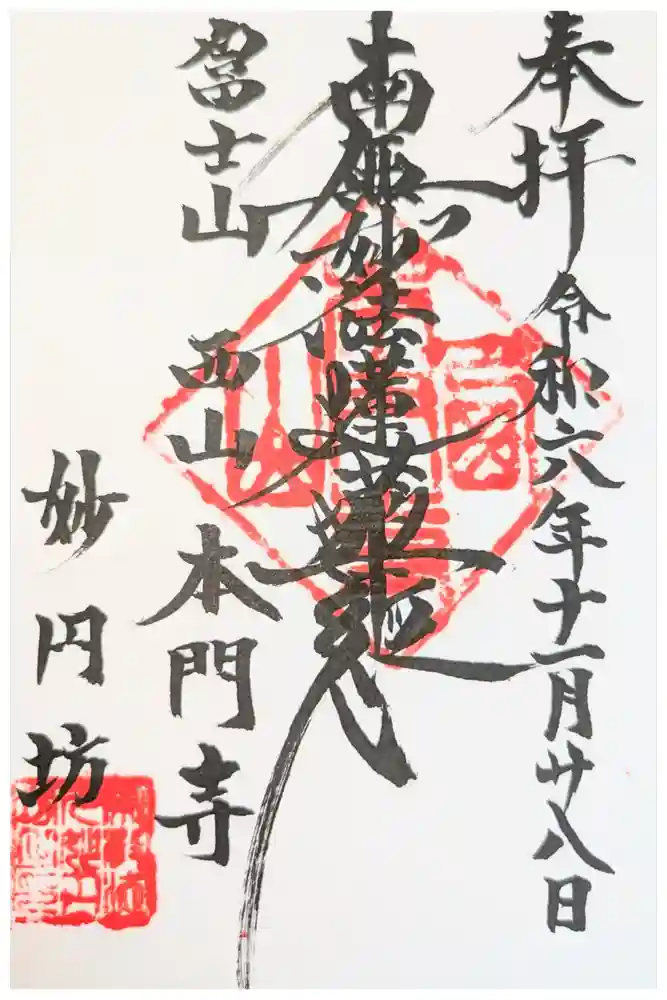 奉拝 令和六年十一月廿八日
南無妙法蓮華経
富士山 西山 本門寺
妙円坊